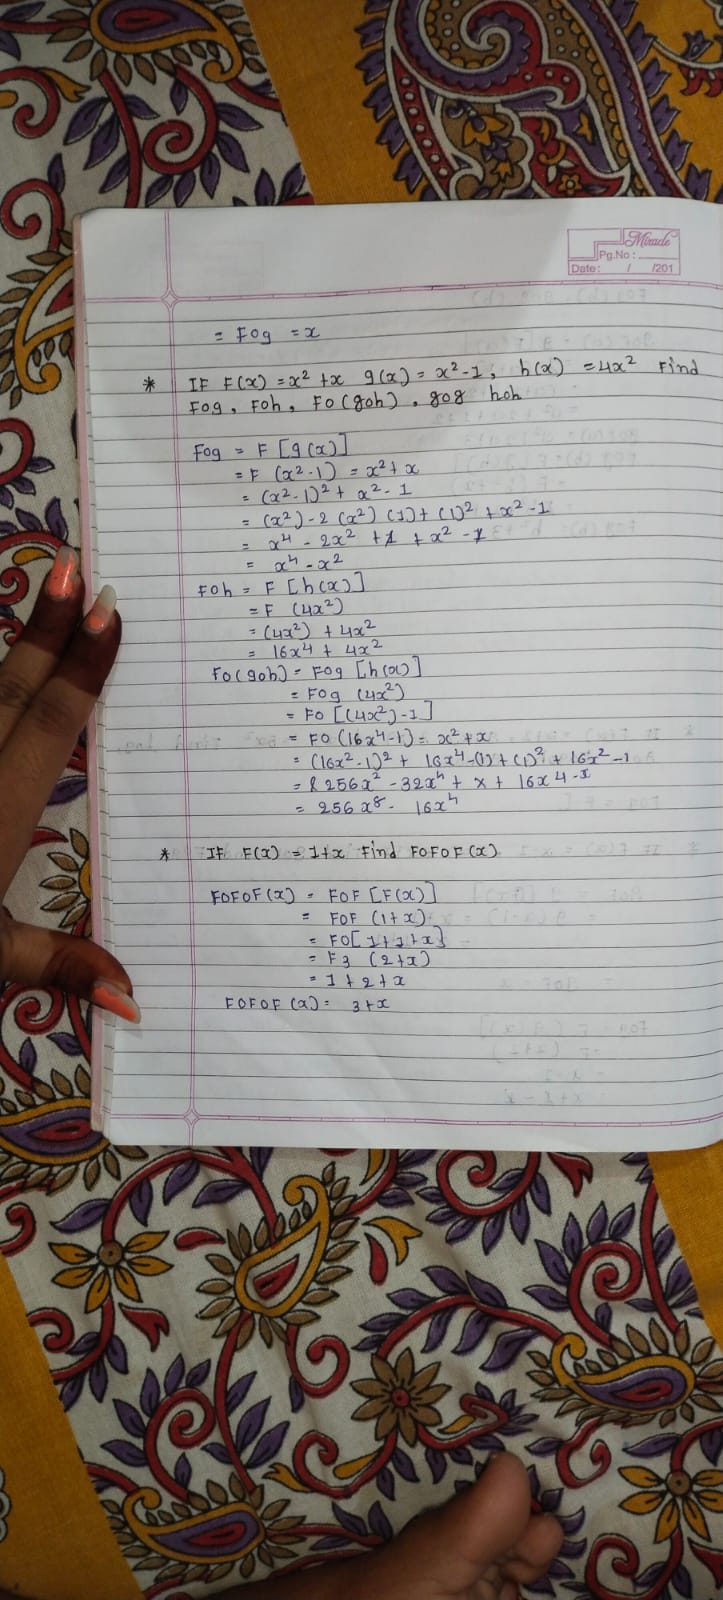 Miracle
Pg.No :
Date: / /201
= Fog = x
* IF F(x) = x² + x g(x) = x² - 1, h(x) = 4x² Find
Fog, Foh, Fo(goh), gog hoh
Fog = F [g(x)]
= F (x² - 1) = x² + x
= (x² - 1)² + x² - 1
= (x²) - 2 (x²) (1) + (1)² + x² - 1
= x⁴ - 2x² + 1 + x² - 1
= x⁴ - x²
Foh = F [h(x)]
= F (4x²)
= (4x²) + 4x²
= 16x⁴ + 4x²
Fo(goh) = Fog [h(x)]
= Fog (4x²)
= Fo [(4x²) - 1]
= Fo (16x⁴ - 1) = x² + x
= (16x² - 1)² + 16x⁴ - (1) + (1)² + 16x² - 1
= 256x² - 32x⁴ + x + 16x4 - 1
= 256x⁸ - 16x⁴
* IF F(x) = 1+x Find FOFOF(x)
FOFOF(x) = FOF [F(x)]
= FOF (1+x)
= FO[1+1+x]
= F3 (2+x)
= 1+2+x
FOFOF(x) = 3+x